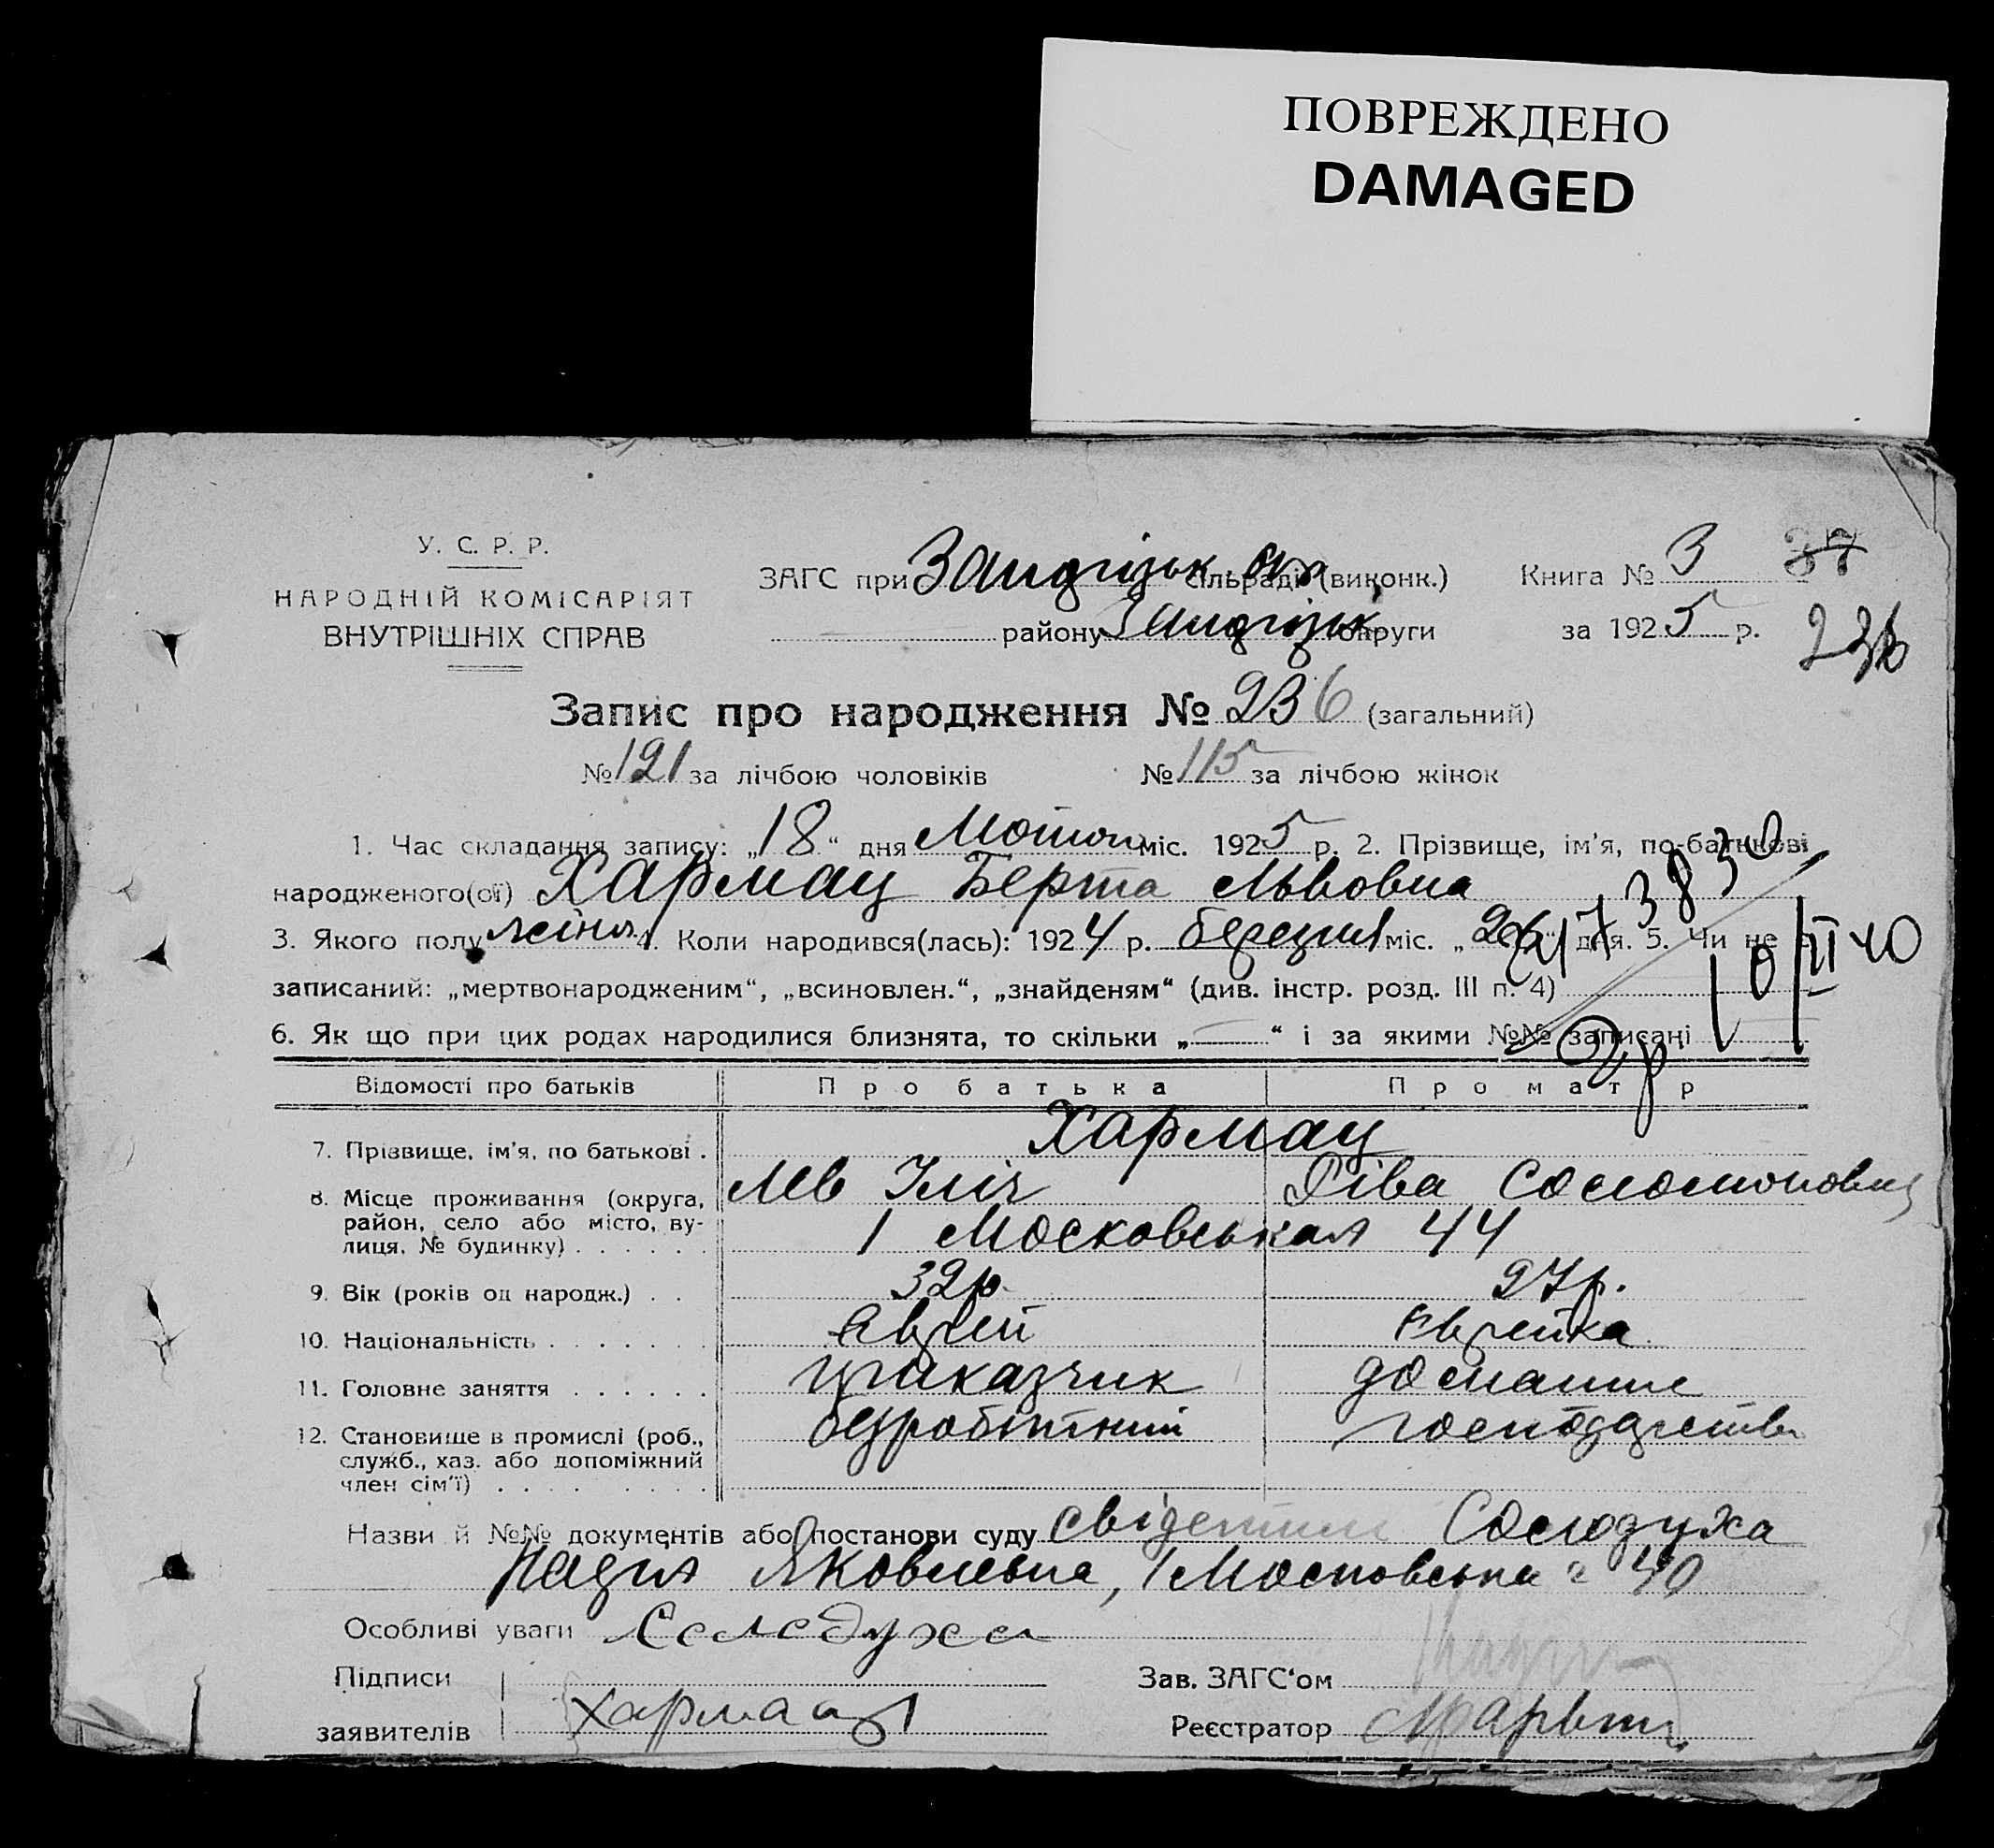 ПОВРЕЖДЕНО
DAMAGED
У. С. Р. Р.
НАРОДНІЙ КОМІСАРІЯТ
ВНУТРІШНІХ СПРАВ
ЗАГС при сільраді (виконк.)
району округи
Книга № 3 37
за 1925 р.
236
Запис про народження № 236 (загальний)
№ 121 за лічбою чоловіків № 115 за лічбою жінок
1. Час складання запису: „18“ дня міс. 1925 р. 2. Прізвище, ім'я, по-батькові
народженого(ої) Хармац Берта Львовна
3. Якого полу жіноч. 4. Коли народився(лась): 1924 р. березня міс. „26“ дня. 5. Чи не є
записаний: „мертвонародженим“, „всиновлен.“, „знайденям“ (див. інстр. розд. III п. 4)
6. Як що при цих родах народилися близнята, то скільки „—“ і за якими №№ записані
Відомості про батьків Про батька Про матір
7. Прізвище, ім'я, по батькові . Хармац
Лев Іліч Ріва Соломоновна
8. Місце проживання (округа,
район, село або місто, ву-
лиця, № будинку) . . . . . .
1 Московськая 44
9. Вік (років од народж.) . . 32 р. 27 р.
10. Національність . . . . . . . Єврей Єврейка
11. Головне заняття . . . . . . приказчик домашнє
12. Становище в промислі (роб.,
служб., хаз. або допоміжний
член сім'ї) . . . . . . . . .
безробітний господарство
Назви й №№ документів або постанови суду свідетили Солодуха
Надія Яковлевна, 1 Московська 40
Особливі уваги Солодуха
Підписи
заявителів Хармац
Зав. ЗАГС‘ом
Реєстратор